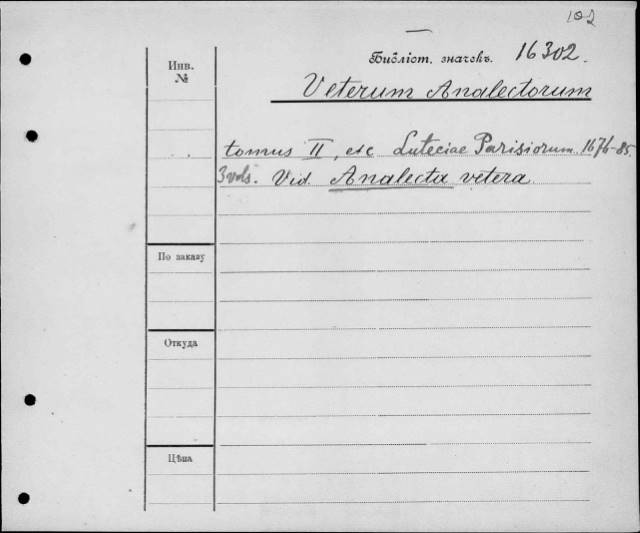 102
Инв.
№
Библіот. значекъ. 16302.
Veterum Analectorum
tomus II, etc Luteciae Parisiorum. 1676-85.
3 vols. Vid. Analecta vetera.
По заказу
Откуда
Цѣна